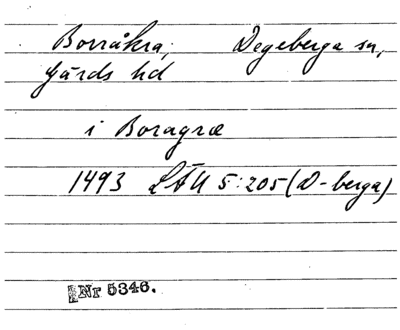 Borråkra, Degeberga sn,
Gärds hd
i Boragræ
1493 LÄU 5:205 (D-berga)
Nr 5346.